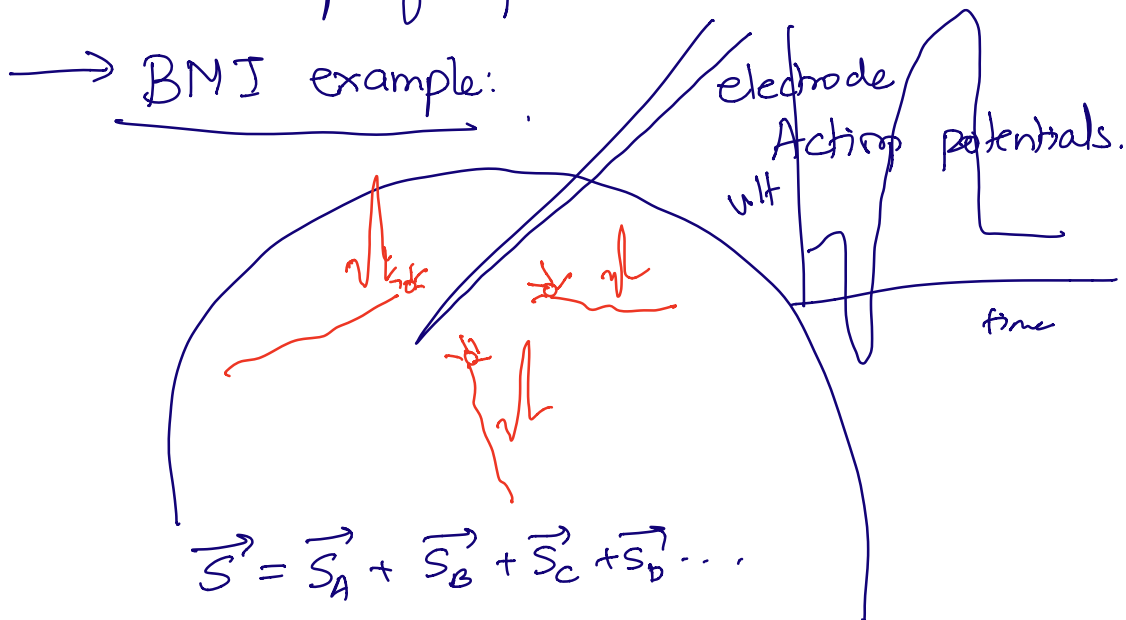 → BMI example:
electrode
Action potentials.
volt
time
S⃗ = S⃗_A + S⃗_B + S⃗_C + S⃗_D ...